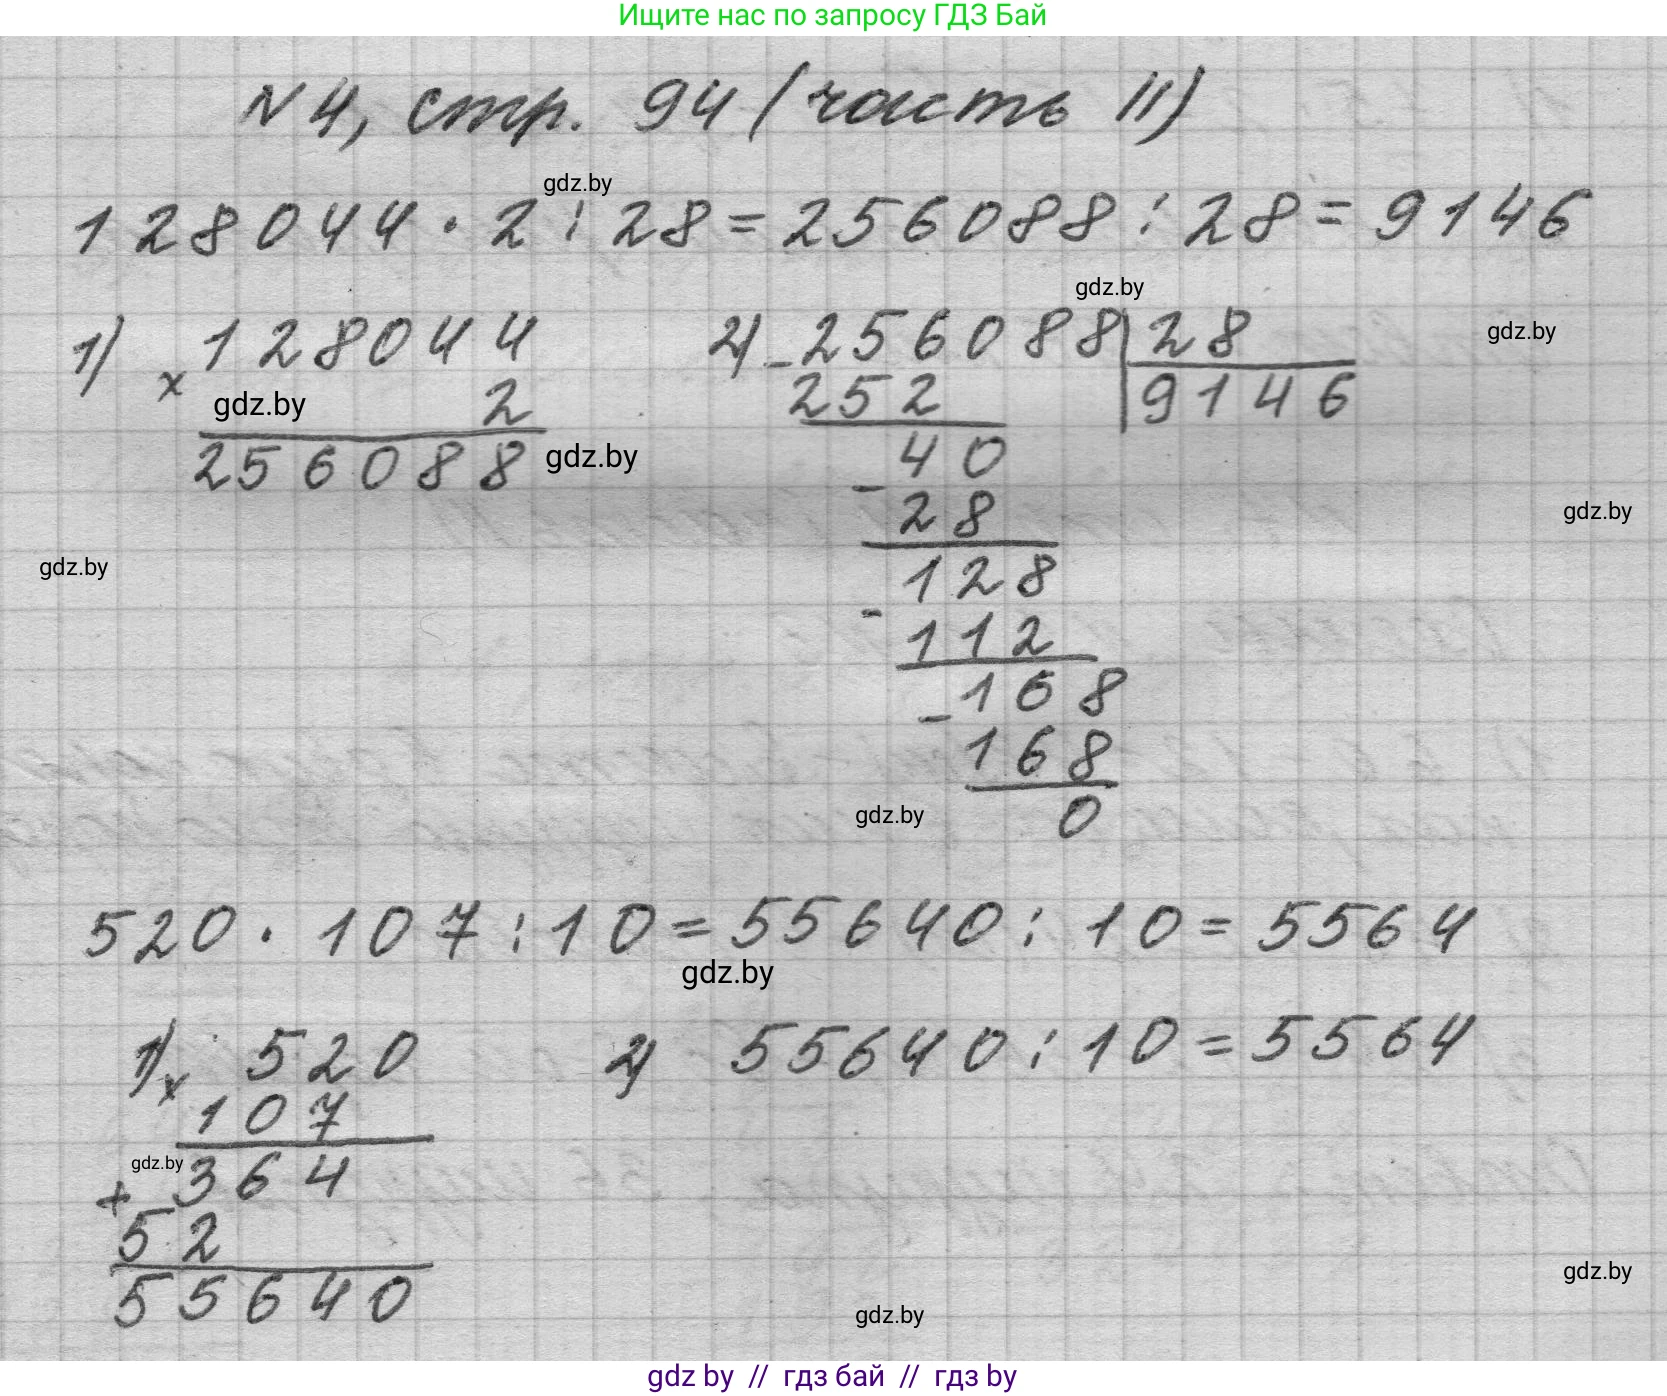 Ищите нас по запросу ГДЗ Бай
N 4, стр. 94 (часть II)
gdz.by
128044 · 2 : 28 = 256088 : 28 = 9146
gdz.by
gdz.by
1) x 128044
2
256088
gdz.by
gdz.by
gdz.by
2) - 256088 | 28
252 9146
40
- 28
128
- 112
168
- 168
0
gdz.by
gdz.by
520 · 107 : 10 = 55640 : 10 = 5564
gdz.by
1) x 520
107
gdz.by
364
+ 52
55640
2) 55640 : 10 = 5564
gdz.by
gdz.by
gdz by // гдз бай // гдз by